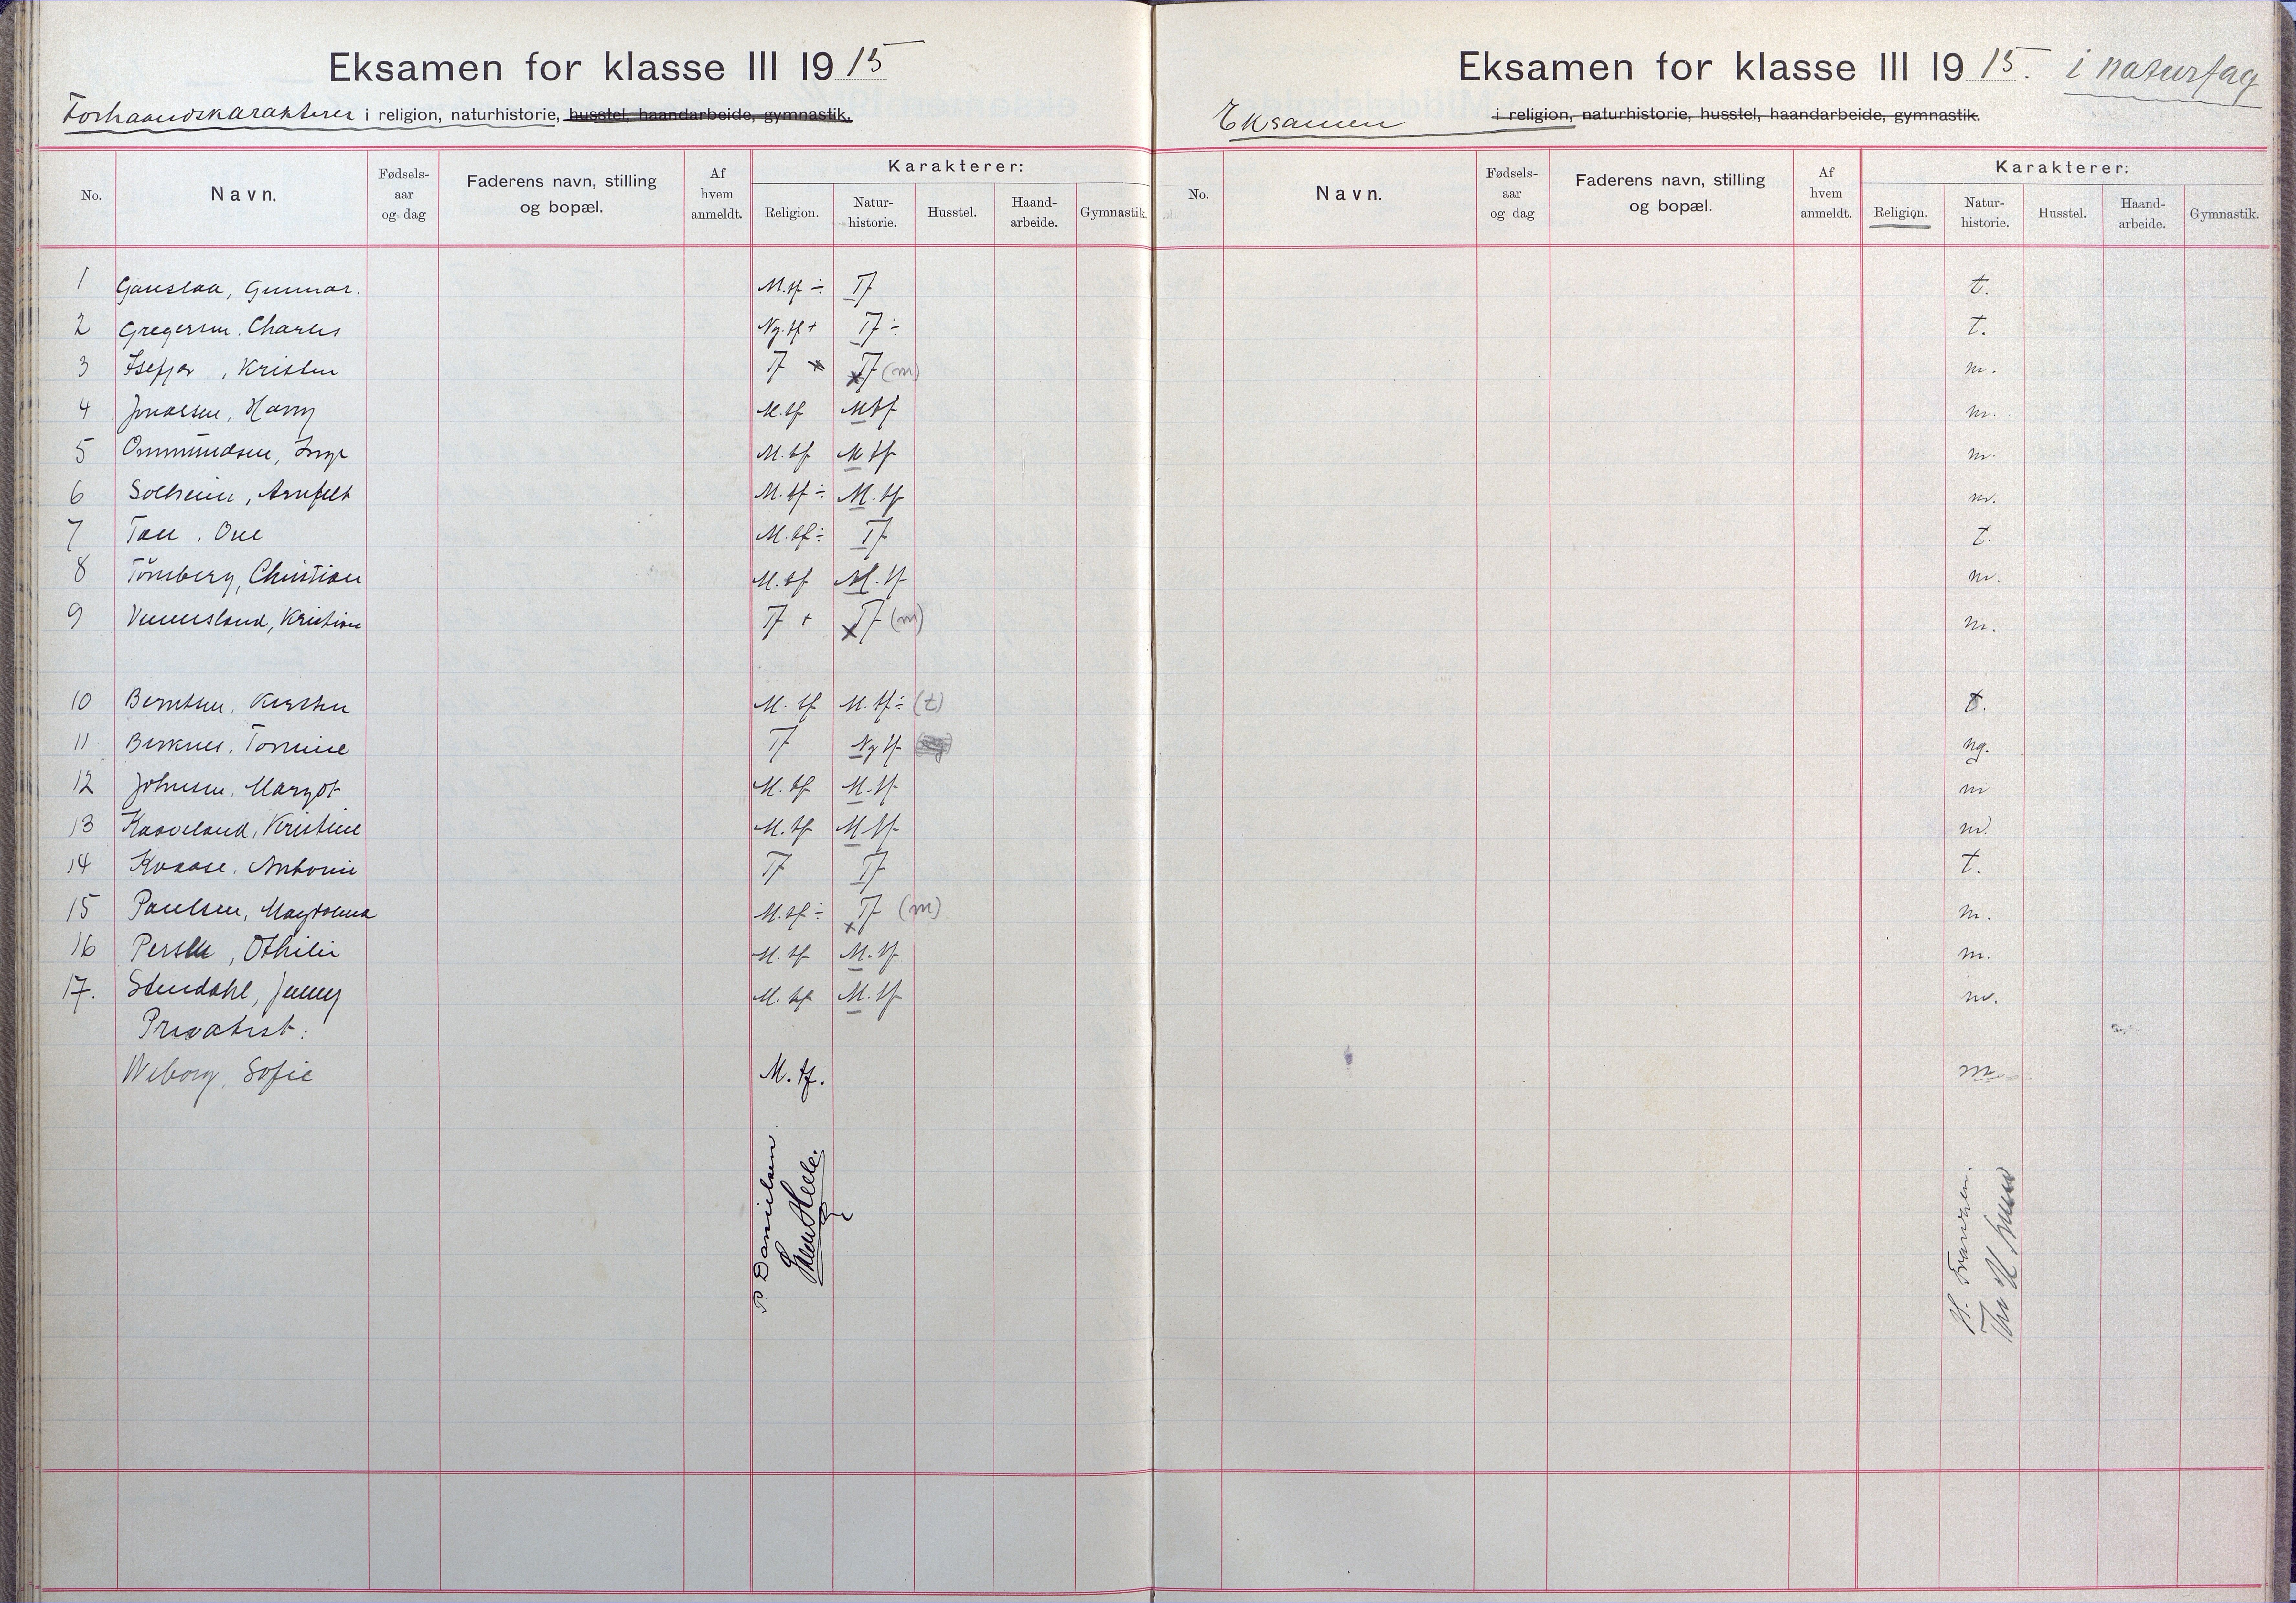 Eksamen for klasse III 1915
Forhaandskarakterer i religion, naturhistorie, husstel, haandarbeide, gymnastik.
No. Navn. Fødsels-aar og dag Faderens navn, stilling og bopæl. Af hvem anmeldt. Karakterer:
Religion. Natur-historie. Husstel. Haand-arbeide. Gymnastik.
1 Gauslaa, Gunnar. M.tf ÷ Tf
2 Gregersen. Charles Ng.tf + Tf ÷
3 Isefjær, Kristen Tf Tf (m)
4 Harry M.tf Mtf
5 Ommundsen, Inga M.tf M tf
6 Solheim, Arnfelt M.tf ÷ M.tf
7 Tau. One M.tf ÷ Tf
8 Törnberg, Christian M.tf M.tf
9 Vennesland, Kristian Tf + x Tf (m)
10 Berntsen. Kirsten M.tf M.tf ÷ (t)
11 Birknes. Tomine Tf Ng tf
12 Johnsen. Margot M.tf M.tf
13 Kaaveland, Kristine M.tf M tf
14 Kvaase. Antonie Tf Tf
15 Paulsen, Magdalena M.tf ÷ x Tf (m)
16 Othilie M.tf M.tf
17. Stendahl, Jenny M.tf M.tf
Privatist:
Weborg, Sofie M.tf.
P. Danielsen
Eksamen for klasse III 1915. i naturfag
Eksamen i religion, naturhistorie, husstel, haandarbeide, gymnastik.
No. Navn. Fødsels-aar og dag Faderens navn, stilling og bopæl. Af hvem anmeldt. Karakterer:
Religion. Natur-historie. Husstel. Haand-arbeide. Gymnastik.
t.
t.
m.
m.
m.
m.
t.
m.
m.
t.
ng.
m
m.
t.
m.
m.
m.
m.
H. Frandsen.